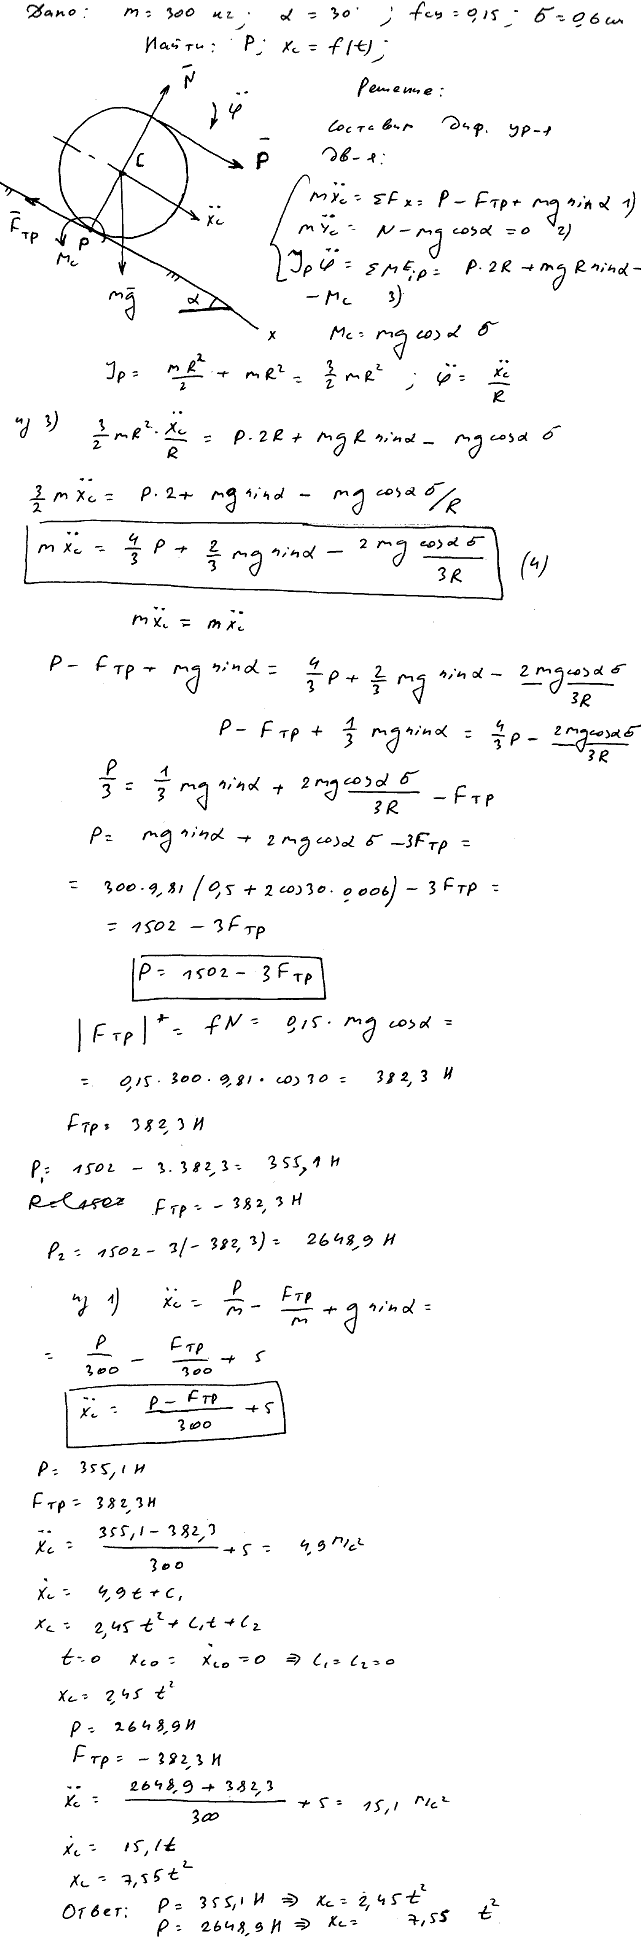 Дано: m = 300 кг; α = 30°; fсц = 0,15; δ = 0,6 см
Найти: P; xc = f(t);
Решение:
составим диф. ур-я
дв-я:
mẍc = ΣFx = P − Fтр + mg sinα 1)
mÿc = N − mg cosα = 0 2)
Jp φ̈ = ΣMEip = P·2R + mgR sinα −
− Mc 3)
Mc = mg cosα δ
N̄
φ̈
P̄
C
ẍc
F̄тр
P
Mc
mḡ
α
x
Jp = mR²/2 + mR² = 3/2 mR² ; φ̈ = ẍc/R
из 3) 3/2 mR² · ẍc/R = P·2R + mgR sinα − mg cosα δ
3/2 mẍc = P·2 + mg sinα − mg cosα δ/R
mẍc = 4/3 P + 2/3 mg sinα − 2mg cosα δ/3R (4)
mẍc = mẍc
P − Fтр + mg sinα = 4/3 P + 2/3 mg sinα − 2mg cosα δ/3R
P − Fтр + 1/3 mg sinα = 4/3 P − 2mg cosα δ/3R
P/3 = 1/3 mg sinα + 2mg cosα δ/3R − Fтр
P = mg sinα + 2mg cosα δ − 3Fтр =
= 300·9,81 (0,5 + 2cos30·0,006) − 3Fтр =
= 1502 − 3Fтр
P = 1502 − 3Fтр
|Fтр|* = fN = 0,15·mg cosα =
= 0,15·300·9,81·cos30 = 382,3 Н
Fтр = 382,3 Н
P₁ = 1502 − 3·382,3 = 355,1 Н
Fтр = −382,3 Н
P₂ = 1502 − 3(−382,3) = 2648,9 Н
из 1) ẍc = P/m − Fтр/m + g sinα =
= P/300 − Fтр/300 + 5
ẍc = (P − Fтр)/300 + 5
P = 355,1 Н
Fтр = 382,3 Н
ẍc = (355,1 − 382,3)/300 + 5 = 4,9 м/с²
ẋc = 4,9t + C₁
xc = 2,45 t² + C₁t + C₂
t=0 xco = ẋco = 0 ⇒ C₁ = C₂ = 0
xc = 2,45 t²
P = 2648,9 Н
Fтр = −382,3 Н
ẍc = (2648,9 + 382,3)/300 + 5 = 15,1 м/с²
ẋc = 15,1t
xc = 7,55t²
Ответ: P = 355,1 Н ⇒ xc = 2,45t²
P = 2648,9 Н ⇒ xc = 7,55 t²